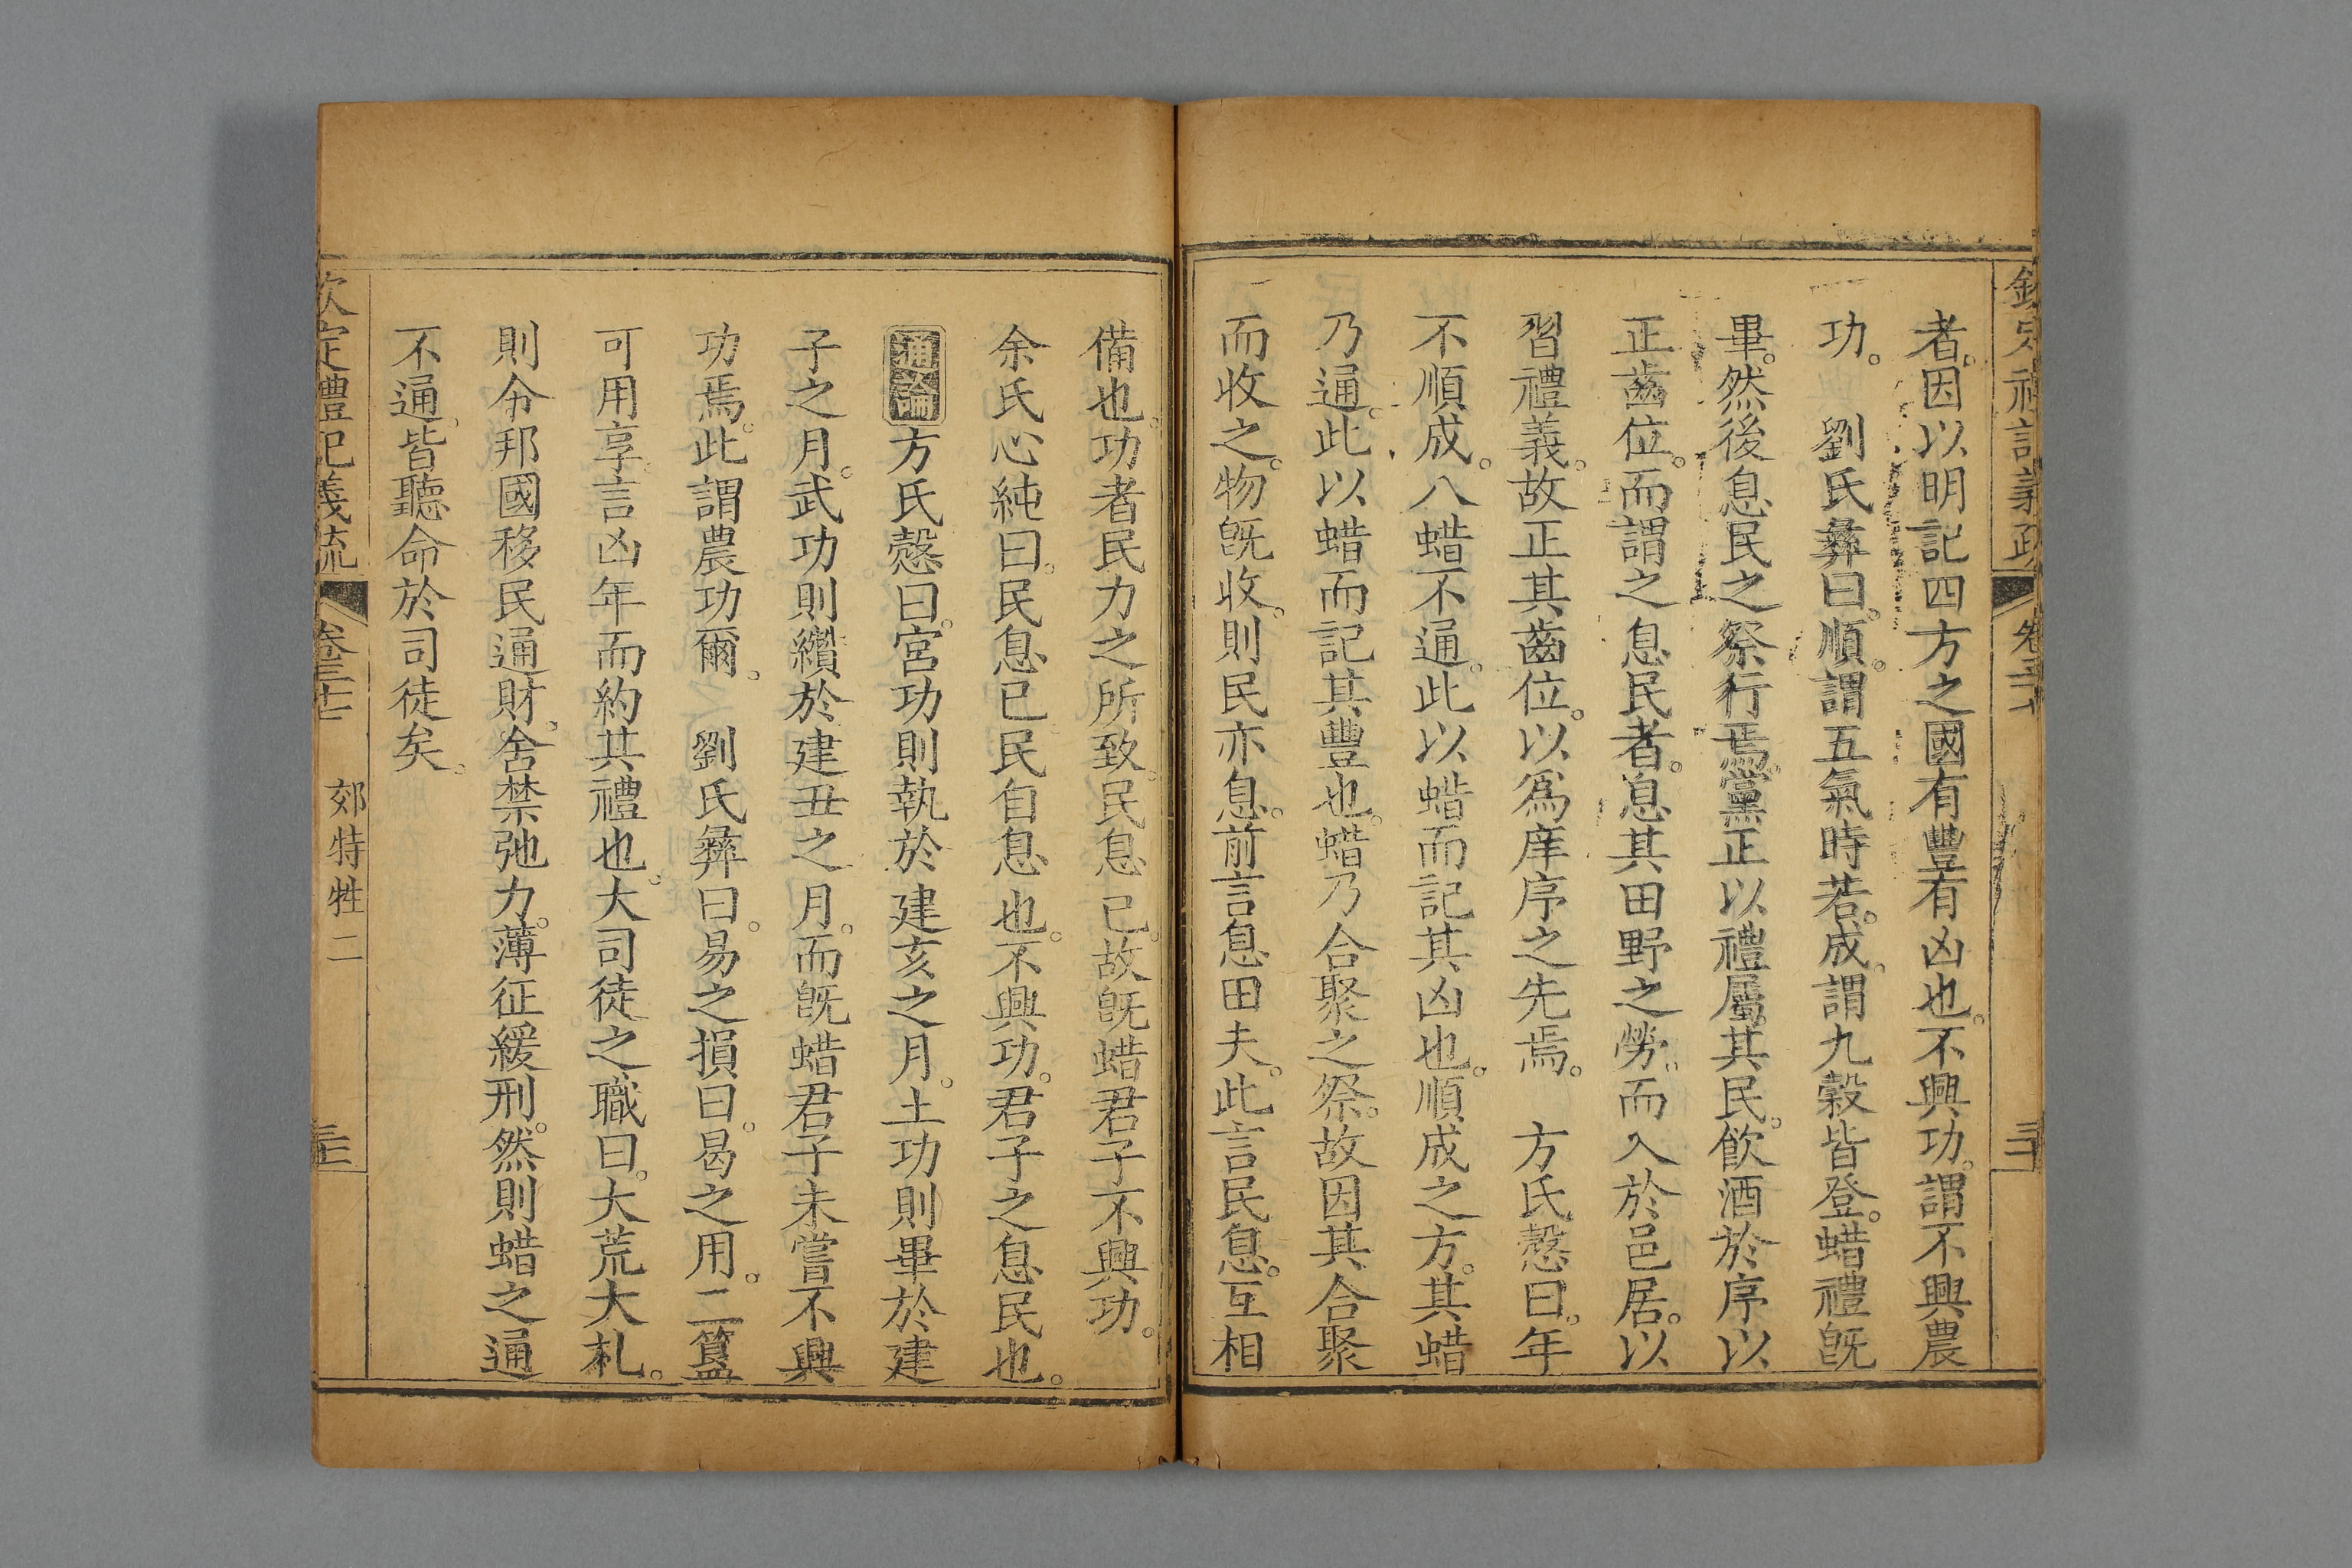 欽定禮記義疏 卷三十六 三十
者。因以明記四方之國有豐有凶也。不興功。謂不興農
功。 劉氏彝曰。順。謂五氣時若。成。謂九穀皆登。蜡禮旣
畢。然後息民之祭行焉。黨正以禮屬其民。飮酒於序以
正齒位。而謂之息民者。息其田野之勞。而入於邑居。以
習禮義。故正其齒位。以爲庠序之先焉。 方氏慤曰。年
不順成。八蜡不通。此以蜡而記其凶也。順成之方。其蜡
乃通。此以蜡而記其豐也。蜡乃合聚之祭。故因其合聚
而收之。物旣收。則民亦息。前言息田夫。此言民息。互相
備也。功者民力之所致。民息已。故旣蜡君子不興功。
余氏心純曰。民息已民自息也。不興功。君子之息民也。
通論方氏慤曰。宮功則執於建亥之月。土功則畢於建
子之月。武功則纘於建丑之月。而旣蜡君子未嘗不興
功焉。此謂農功爾。 劉氏彝曰。易之損曰。曷之用。二簋
可用享。言凶年而約其禮也。大司徒之職曰。大荒大札。
則令邦國移民通財。舍禁弛力。薄征緩刑。然則蜡之通
不通。皆聽命於司徒矣。
欽定禮記義疏 郊特牲二